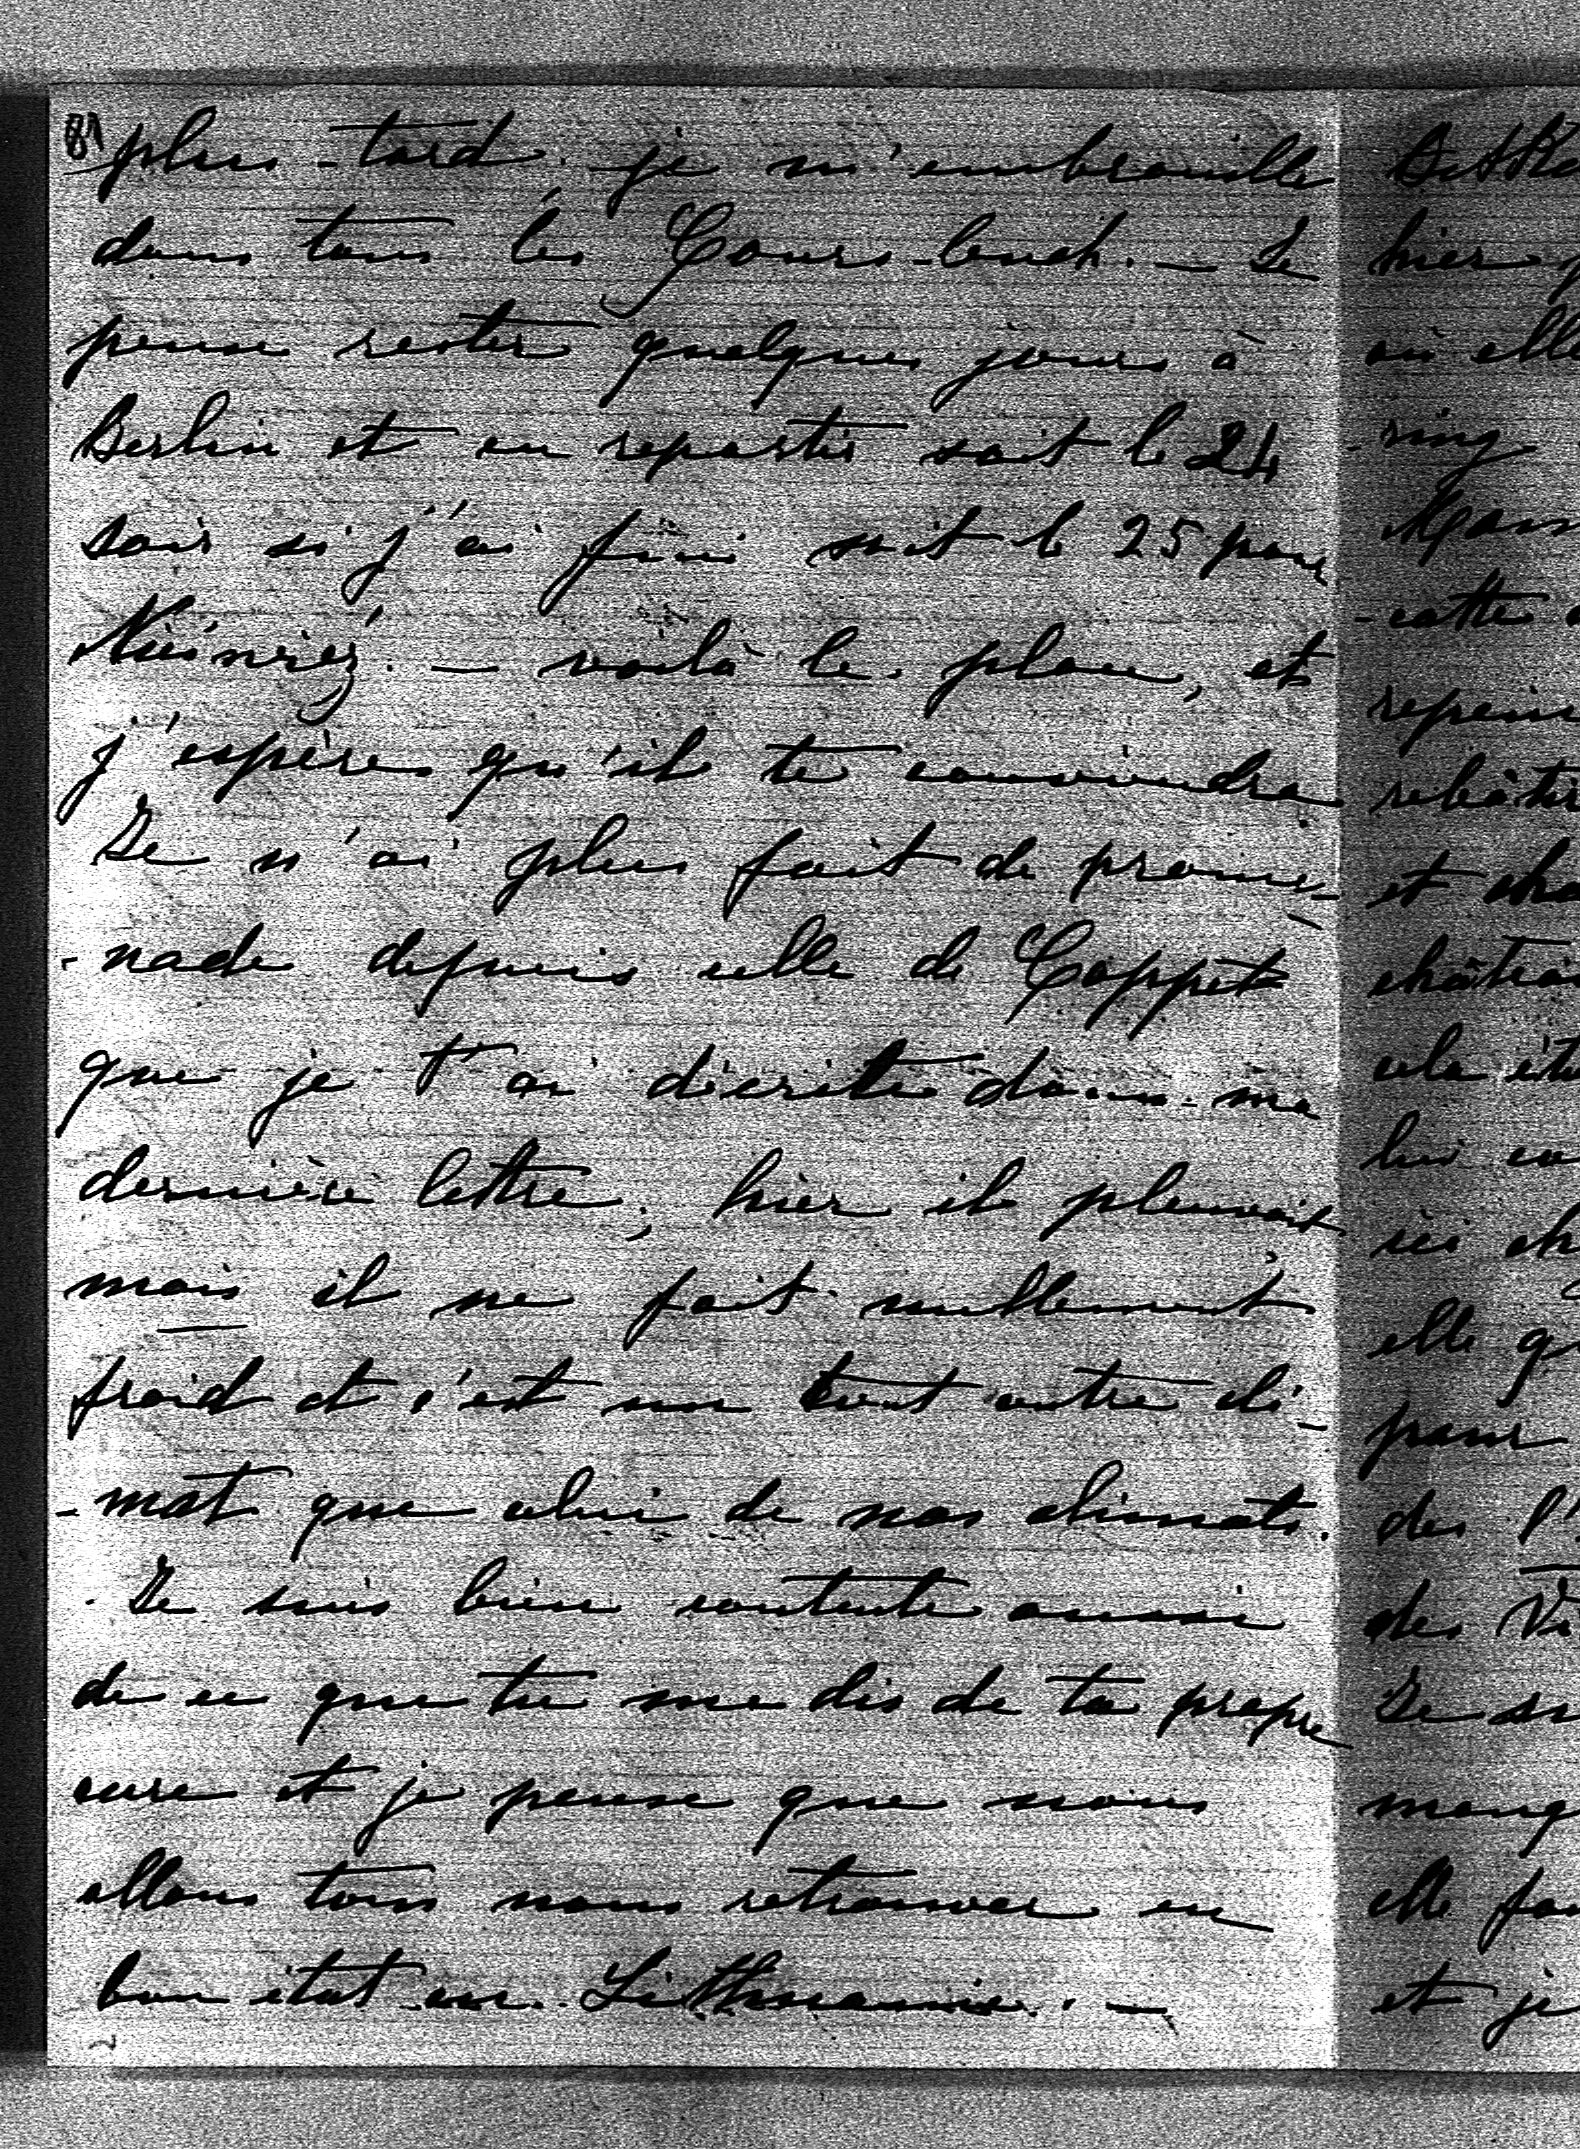 81
plus tard, je m'embrouille
dans tous les Cours-buch. — Je
pense rester quelques jours à
Berlin et en repartir soit le 24
soir si j'ai fini soit le 25 pour
— voilà le plan, et
j'espère qu'il te conviendra.
Je n'ai plus fait de prome-
-nade depuis celle de Coppet
que je t'ai décrite dans ma
dernière lettre; hier il pleuvait
mais il ne fait nullement
froid et c'est un tout autre cli-
-mat que celui de nos climats.
Je suis bien contente aussi
de ce que tu me dis de ta propre
cure et je pense que nous
allons tous nous retrouver en
bon état en Lithuanie. —
hier
où elle
-ring
-cette
rebâtir
et cha
elle
pour
des l'
des Vi
Je su
mang
elle fa
et je